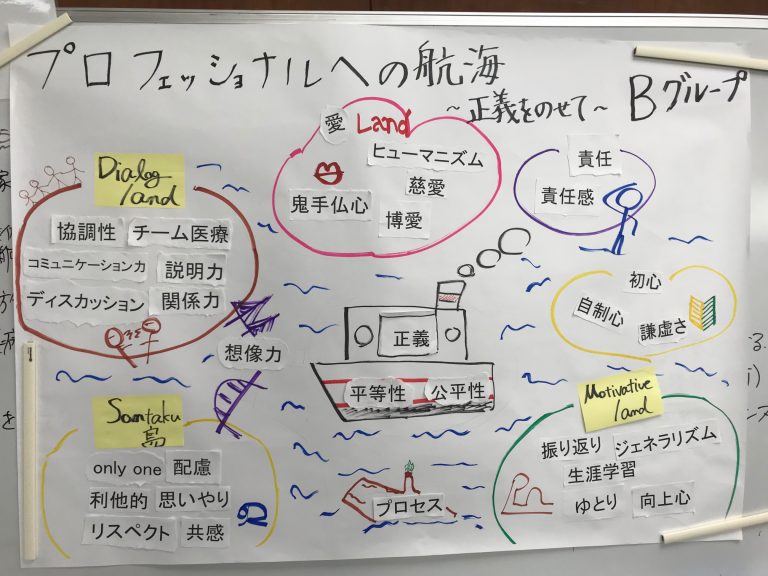 プロフェッショナルへの航海
～正義をのせて～
Bグループ
愛 Land
ヒューマニズム
慈愛
鬼手仏心
博愛
責任
責任感
Dialog
land
協調性 チーム医療
コミュニケーション力 説明力
ディスカッション 関係力
想像力
正義
平等性 公平性
初心
自制心
謙虚さ
Santaku
島
only one 配慮
利他的 思いやり
リスペクト 共感
プロセス
Motivative
land
振り返り ジェネラリズム
生涯学習
ゆとり 向上心